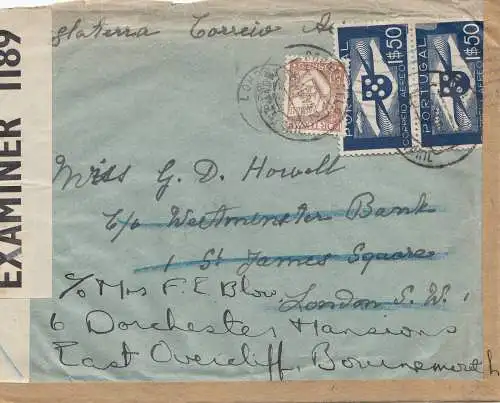 glaterra Correio
EXAMINER 1189
PORTUGAL
CORREIO AEREO
1$50
PORTUGAL
CORREIO AEREO
1$50
Miss G. D. Howell
c/o Westminster Bank
1 St James Square
London S.W.1
c/o Mrs F. E. Blow.
6 Dorchester Mansions
East Overcliff, Bournemouth